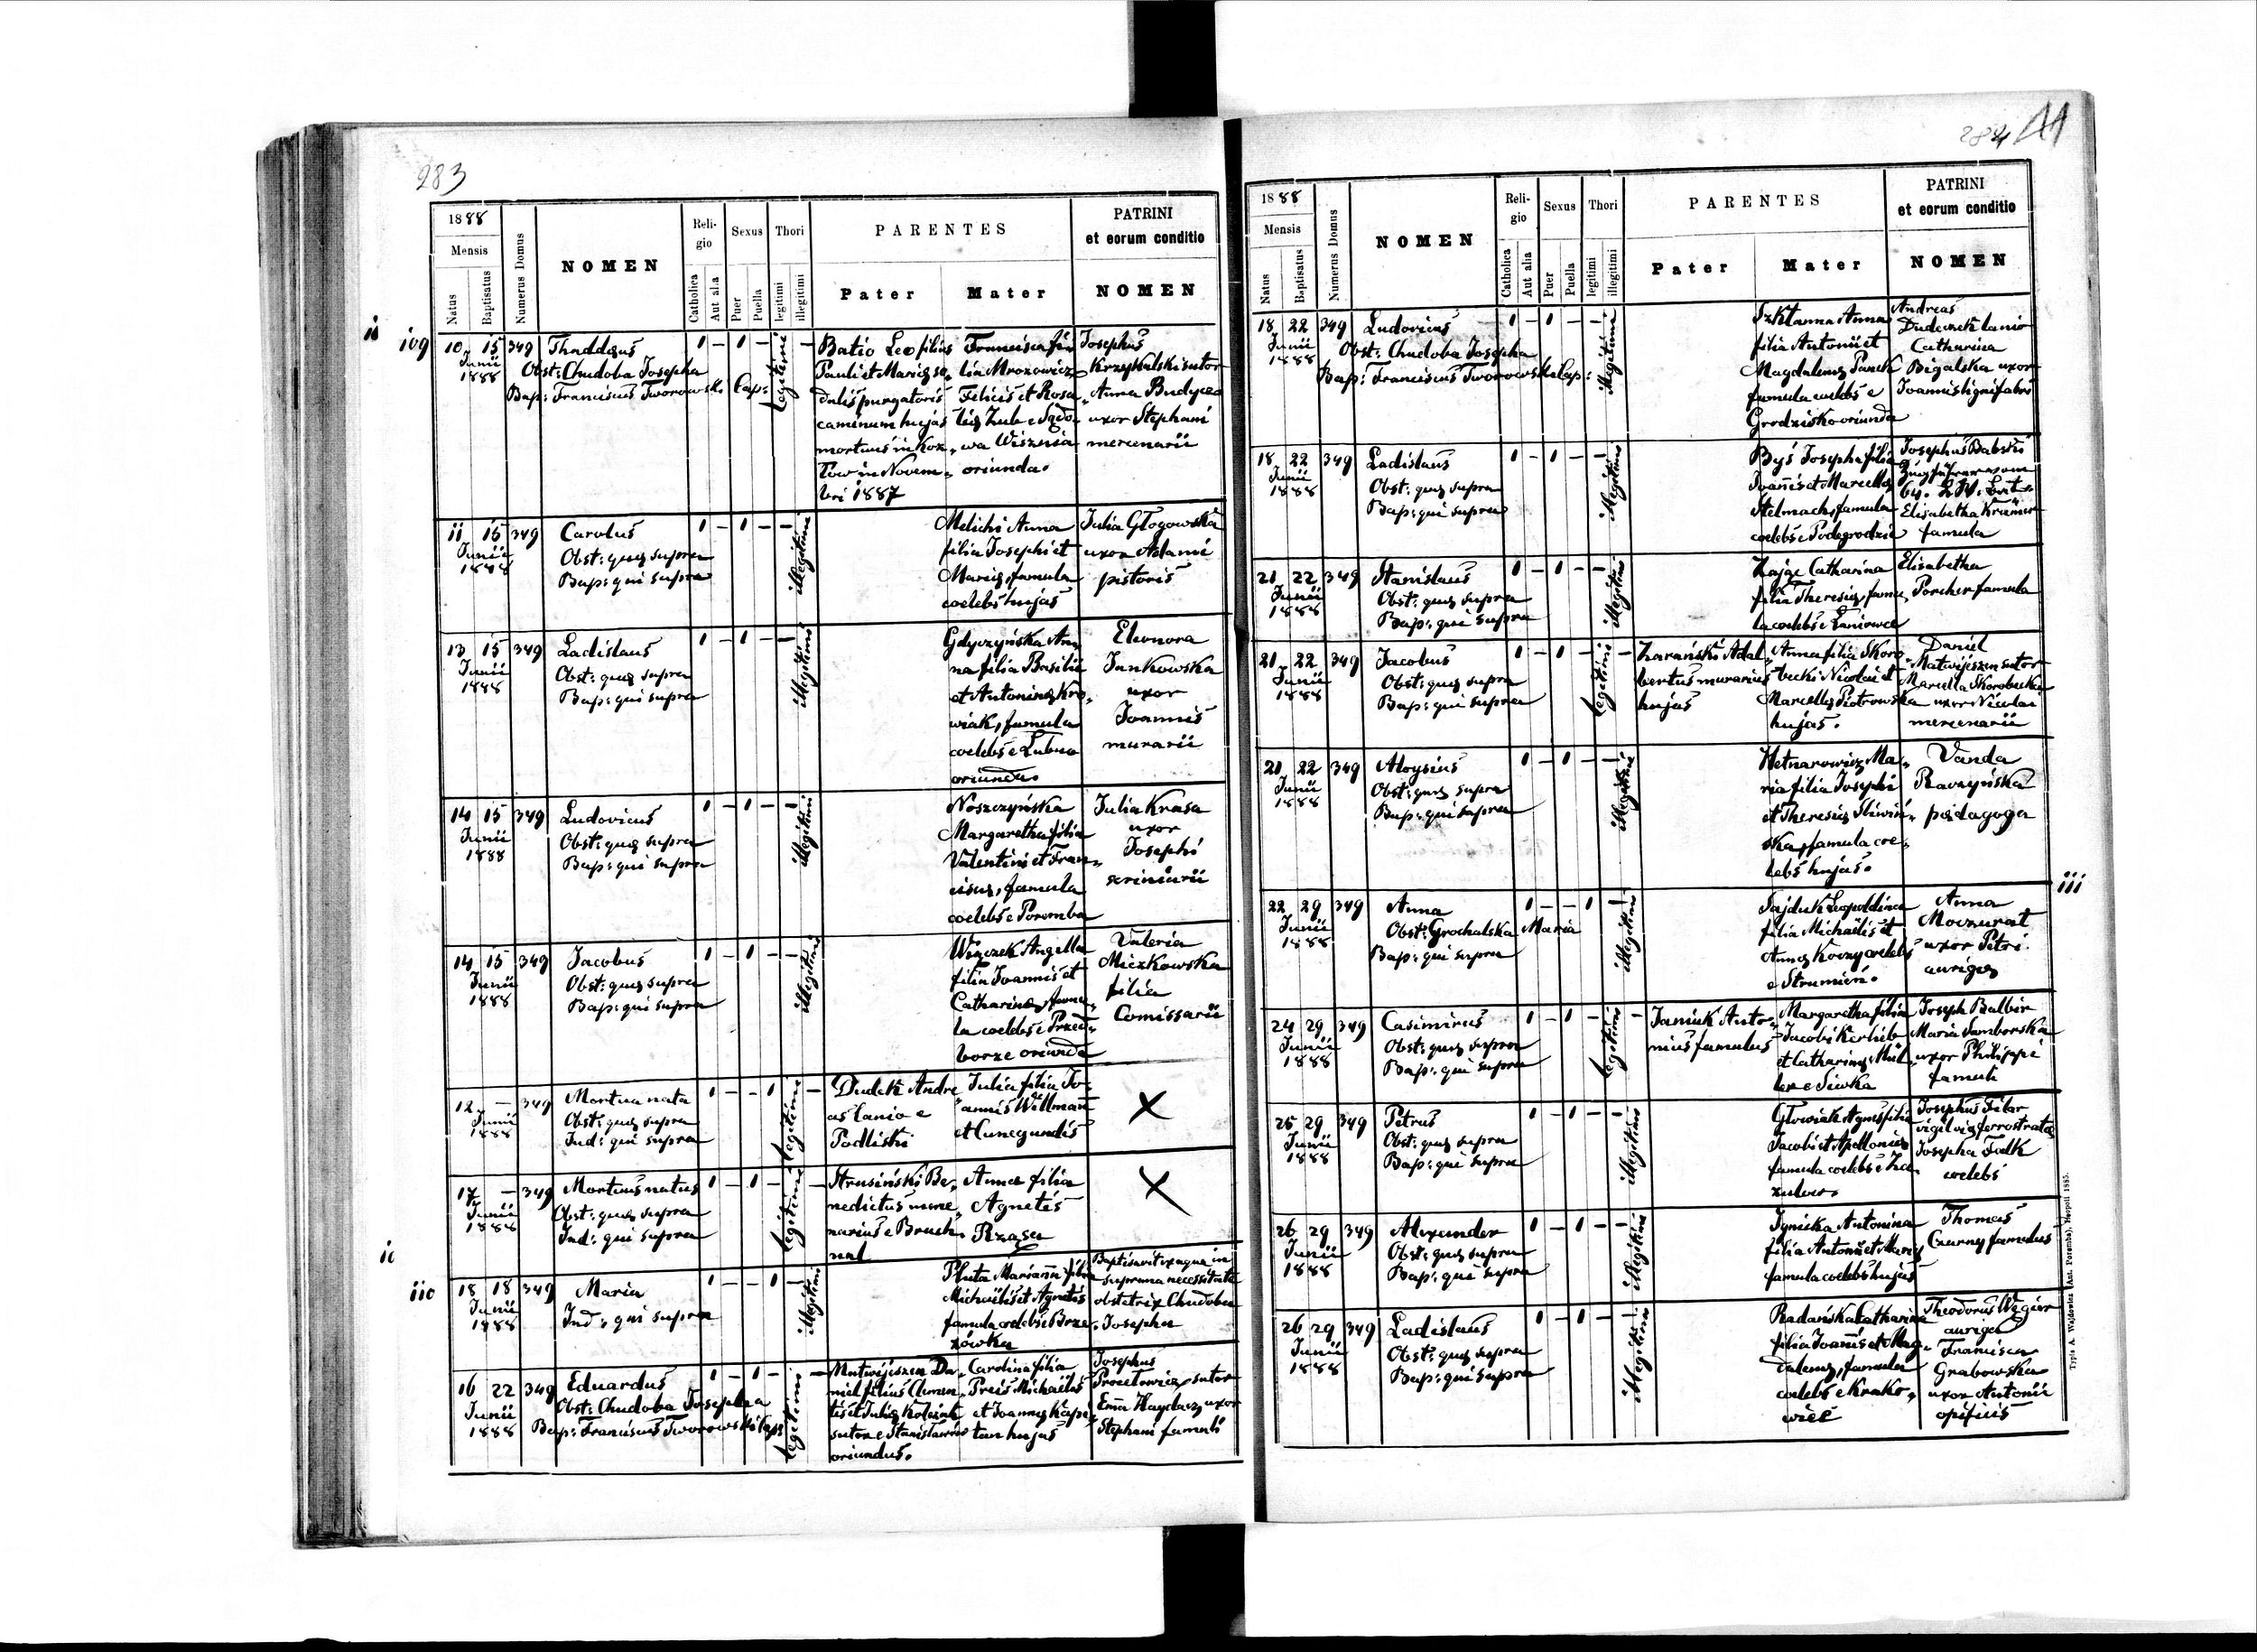 283
1888
Mensis
Natus
Baptisatus
Numerus Domus
NOMEN
Reli-
gio
Catholica
Aut alia
Sexus
Puer
Puella
Thori
legitimi
illegitimi
PARENTES
Pater
Mater
PATRINI
et eorum conditio
NOMEN
10 15 349 Thaddæus 1 - 1 - 1 -
Junii
1888
Obst: Chudoba Josepha
Bap: Franciscus Tworowski Cap:
legitimi
Batio Leo filius
Pauli et Mariæ so,
dalis purgatoris
caminum hujas
mortuus in Koz,
łow in Novem,
bri 1887
Francisca fi,
lia Mrozowicz
Felicis et Rosa,
liæ Zub e Sądo,
wa Wisznia
oriunda.
Josephus
Krzykalski sutor
Anna Budycza
uxor Stephani
mercenarii
11 15 349 Carolus 1 - 1 - - 1
Junii
1888
Obst: quæ supra
Bap: qui supra
illegitimi
Melichi Anna
filia Josephi et
Mariæ, famula
coelebs hujas
Julia Głogowska
uxor Adami
pistoris
13 15 349 Ladislaus 1 - 1 - - 1
Junii
1888
Obst: quæ supra
Bap: qui supra
illegitimi
Gdyczyńska An,
na filia Basilii
et Antoninæ Kro,
wiak, famula
coelebs e Lubno
oriunda.
Eleonora
Jankowska
uxor
Joannis
murarii
14 15 349 Ludovicus 1 - 1 - - 1
Junii
1888
Obst: quæ supra
Bap: qui supra
illegitimi
Noszczyńska
Margaretha filia
Valentini et Fran,
ciscæ, famula
coelebs e Poremba
Julia Krasa
uxor
Josephi
scriniarii
14 15 349 Jacobus 1 - 1 - - 1
Junii
1888
Obst: quæ supra
Bap: qui supra
illegitimi
Angella
filia Joannis et
Catharinæ, famu,
la coelebs e Przed,
borze oriunda
Valeria
Miczkowska
filia
Comissarii
12 - 349 Mortua nata 1 - - 1 1 -
Junii
1888
Obst: quæ supra
Ind: qui supra
legitimi
Dudek Andre,
as lanio e
Podliski
Julia filia Jo,
annis Willman
et Cunegundis
X
17 - 349 Mortuus natus 1 - 1 - 1 -
Junii
1888
Obst: quæ supra
Ind: qui supra
legitimi
Strusiński Be,
nedictus merce,
narius e Bruch,
nal
Anna filia
Agnetis
Rzasa
X
18 18 349 Maria 1 - - 1 - 1
Junii
1888
Ind: qui supra
illegitimi
Pluta Mariann filia
Michaëlis et Agnetis
famula coelebs e Brze,
zówka
Baptisavit ex aqua in
suprema necessitate
obstetrix Chudoba
Josepha
16 22 349 Eduardus 1 - 1 - 1 -
Junii
1888
Obst: Chudoba Josepha
Bap: Franciscus Tworowski Cap:
legitimi
Matwijeszen Da,
niel filius Clemen,
tis et Juliæ
sutor e Stanisławów
oriundus.
Carolina filia
Preis Michaëlis
et Joannæ Kapi,
tan hujas
Josephus
sutor
Emma Haydacz uxor
Stephani famuli
284
1888
Mensis
Natus
Baptisatus
Numerus Domus
NOMEN
Reli-
gio
Catholica
Aut alia
Sexus
Puer
Puella
Thori
legitimi
illegitimi
PARENTES
Pater
Mater
PATRINI
et eorum conditio
NOMEN
18 22 349 Ludovicus 1 - 1 - - 1
Junii
1888
Obst: Chudoba Josepha
Bap: Franciscus Tworowski Cap:
illegitimi
Szklanna Anna
filia Antonii et
Magdalenæ Panek
famula coelebs e
Grodzisko oriunda
Andreas
Dudeczek lanio
Catharina
Bigalska uxor
Joannis lignifabri
18 22 349 Ladislaus 1 - 1 - - 1
Junii
1888
Obst: quæ supra
Bap: qui supra
illegitimi
Byś Josepha filia
Joannis et Marcellæ
Stelmach, famula
coelebs e Podegrodzie
Josephus Babski
Elisabetha Kramer
famula
21 22 349 Stanislaus 1 - 1 - - 1
Junii
1888
Obst: quæ supra
Bap: qui supra
illegitimi
Zając Catharina
filia Theresiæ, famu,
la coelebs e Laniowce
Elisabetha
Porcher famula
21 22 349 Jacobus 1 - 1 - 1 -
Junii
1888
Obst: quæ supra
Bap: qui supra
legitimi
Zarański Adal,
bertus murarius
hujas
Anna filia Skoro,
becki Nicolai et
Marcellæ Piotrowska
hujas.
Daniel
Matwijeszen sutor
Marcella Skorobecka
uxor Nicolai
mercenarii
21 22 349 Aloysius 1 - 1 - - 1
Junii
1888
Obst: quæ supra
Bap: qui supra
illegitimi
Hetnarowicz Ma,
ria filia Josephi
et Theresiæ Śliwiń,
ska, famula coe,
lebs hujas.
Vanda
Raczyńska
pædagoga
22 29 349 Anna 1 - - 1 - 1
Junii
1888
Obst: Grochalska Maria
Bap: qui supra
illegitimi
Sajduk Leopoldina
filia Michaëlis et
Annæ Koczy coelebs
e Strumień.
Anna
Moczurat
uxor Petri
aurigæ
24 29 349 Casimirus 1 - 1 - 1 -
Junii
1888
Obst: quæ supra
Bap: qui supra
legitimi
Janiuk Anto,
nius famulus
Margaretha filia
Jacobi Kerlieb
et Catharinæ Mül,
ler e Siwka
Joseph Balbir
Maria Samborska
uxor Philippi
famuli
25 29 349 Petrus 1 - 1 - - 1
Junii
1888
Obst: quæ supra
Bap: qui supra
illegitimi
Głowiak Agnes filia
Jacobi et Apolloniæ
famula coelebs e
Josephus Filar
vigil viæ ferrostratæ
Josepha Falk
coelebs
26 29 349 Alexander 1 - 1 - - 1
Junii
1888
Obst: quæ supra
Bap: qui supra
illegitimi
Tynicka Antonina
filia Antonii et Mariæ
famula coelebs hujas
Thomas
Czarny famulus
26 29 349 Ladislaus 1 - 1 - - 1
Junii
1888
Obst: quæ supra
Bap: qui supra
illegitimi
Radańska Catharina
filia Joannis et Mag,
dalenæ, famula
coelebs e Krako,
wiec
Theodorus Węgier
auriga
Francisca
Grabowska
uxor Antonii
opificis
iii
Typis A. Wajdowicz (Ant. Poremba), Leopoli 1885.